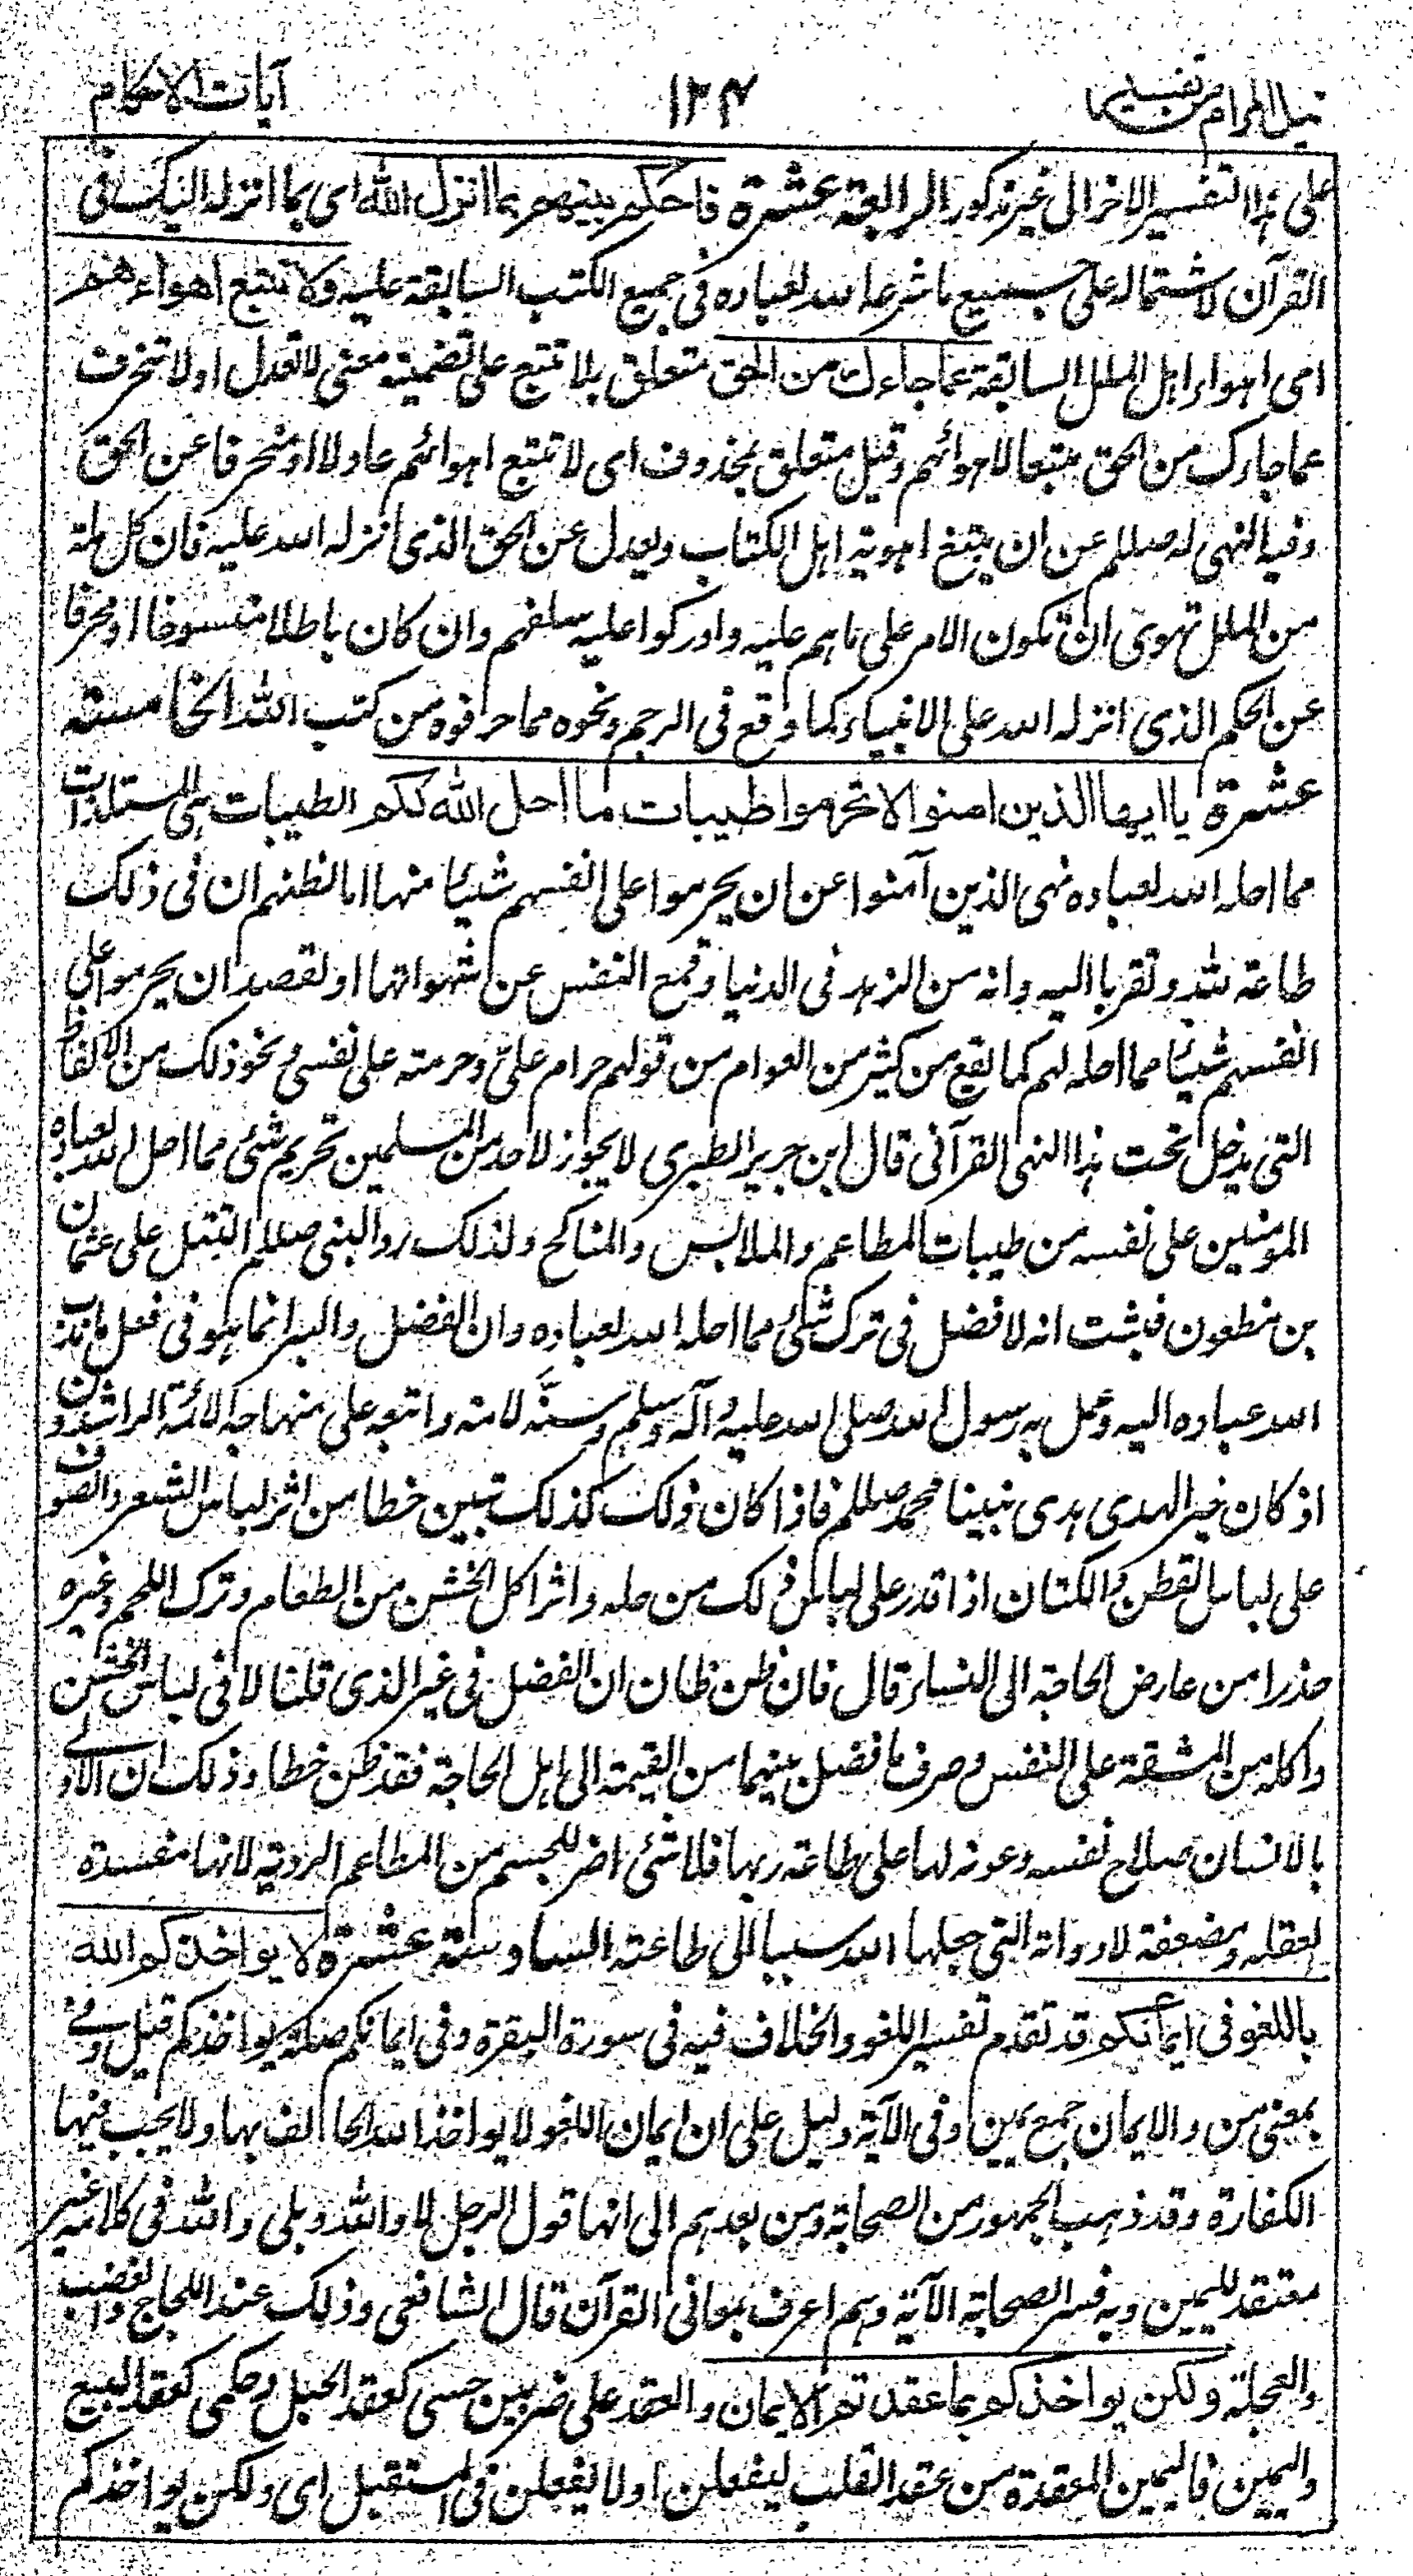 نيل المرام من تفسير ١٢٤ آيات الاحكام
على هذا التفسير الاخر الى غير مذكور الرابعة عشرة فاحكم بينهم بما انزل الله اى بما انزله اليك فى
القرآن لاشتماله على جميع ما شرعه الله لعباده فى جميع الكتب السابقة عليه ولا تتبع اهواءهم
اى اهواء اهل الملل السابقة عما جاءك من الحق متعلق بلا تتبع على تضمينه معنى لا تعدل او لا تنحرف
عما جاءك من الحق متبعا لاهوائهم وقيل متعلق بمحذوف اى لا تتبع اهوائهم عادلا او منحرفا عن الحق
وفيه النهى له صللم عن ان يتبع اهوية اهل الكتاب ويعدل عن الحق الذى انزله الله عليه فان كل ملة
من الملل تهوى ان يكون الامر على ما هم عليه وادركوا عليه سلفهم وان كان باطلا منسوخا او محرفا
عن الحكم الذى انزله الله على الانبياء كما وقع فى الرجم ونحوه مما حرفوه من كتب الله الخامسة
عشرة يا ايها الذين امنوا لا تحرموا طيبات ما احل الله لكم الطيبات هى المستلذات
مما احله الله لعباده نهى الذين آمنوا عن ان يحرموا على انفسهم شيئا منها اما لظنهم ان فى ذلك
طاعة لله وتقربا اليه وانه من الزهد فى الدنيا وقمع النفس عن شهواتها او لقصد ان يحرموا على
انفسهم شيئا مما احله لهم كما يقع من كثير من العوام من قولهم حرام علىّ وحرمته على نفسى ونحو ذلك من الالفاظ
التى يدخل تحت هذا النهى القرآنى قال ابن جرير الطبرى لا يجوز لاحد من المسلمين تحريم شئ مما احل الله لعباده
المومنين على نفسه من طيبات المطاعم والملابس والمناكح ولذلك رد النبى صللم التبتل على عثمان
بن مظعون فثبت انه لا فضل فى ترك شئ مما احله الله لعباده وان الفضل والبر انما هو فى فعل ما ندب
الله عباده اليه وعمل به رسول الله صلى الله عليه وآله وسلم وسنَّه لامته واتبعه على منهاجه الائمة الراشدون
اذ كان خير الهدى هدى نبينا محمد صللم فاذا كان ذلك كذلك تبين خطا من اثر لباس الشعر والصوف
على لباس القطن والكتان اذا قدر على لباس ذلك من حله واثر اكل الخشن من الطعام وترك اللحم وغيره
حذرا من عارض الحاجة الى النساء قال فان ظن ظان ان الفضل فى غير الذى قلنا لما فى لباس الخشن
واكله من المشقة على النفس وصرف ما فضل بينهما من القيمة الى اهل الحاجة فقد ظن خطا وذلك ان الاولى
بالانسان صلاح نفسه وعونه لها على طاعة ربها فلا شئ اضر للجسم من المطاعم الردية لانها مفسدة
لعقله ومضعفة لادواته التى جعلها الله سببا الى طاعته السادسة عشرة لا يواخذكم الله
باللغو فى ايمانكم قد تقدم تفسير اللغو والخلاف فيه فى سورة البقرة وفى ايمانكم صلة يواخذكم قيل وفى
بمعنى من والايمان جمع يمين وفى الآية دليل على ان ايمان اللغو لا يواخذ الله الحالف بها ولا يجب فيها
الكفارة وقد ذهب الجمهور من الصحابة ومن بعدهم الى انها قول الرجل لا والله وبلى والله فى كلامه غير
معتقد لليمين وبه فسر الصحابة الآية وهم اعرف بمعانى القرآن قال الشافعى وذلك عند اللجاج والغضب
والعجلة ولكن يواخذكم بما عقدتم الايمان والعقد على ضربين حسى كعقد الحبل وحكمى كعقد البيع
واليمين فاليمين المعقدة من عقد القلب ليفعلن او لا يفعلن فى المستقبل اى ولكن يواخذكم